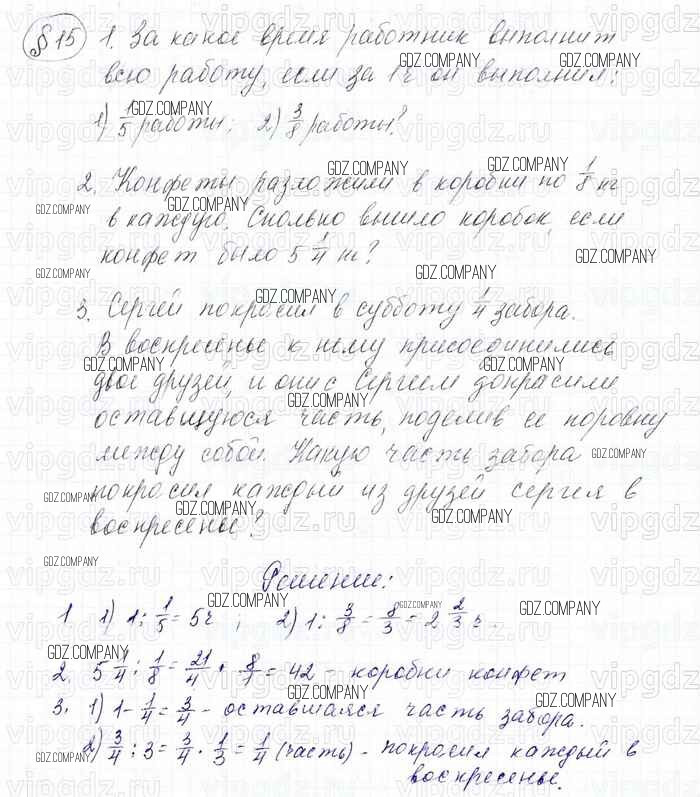 §15 1. За какое время работник выполнит
всю работу, если за 1 ч он выполнил:
1) 1/5 работы; 2) 3/8 работы?
2. Конфеты разложили в коробки по 1/8 кг
в каждую. Сколько вышло коробок, если
конфет было 5 1/4 кг?
3. Сергей покрасил в субботу 1/4 забора.
В воскресенье к нему присоединились
двое друзей, и они с Сергеем докрасили
оставшуюся часть, поделив ее поровну
между собой. Какую часть забора
покрасил каждый из друзей Сергея в
воскресенье?
Решение:
1 1) 1 : 1/5 = 5 ч ; 2) 1 : 3/8 = 8/3 = 2 2/3 ч.
2. 5 1/4 : 1/8 = 21/4 · 8/1 = 42 - коробки конфет
3. 1) 1 - 1/4 = 3/4 - оставшаяся часть забора.
2) 3/4 : 3 = 3/4 · 1/3 = 1/4 (часть) - покрасил каждый в
воскресенье.
GDZ.COMPANY
vipgdz.ru